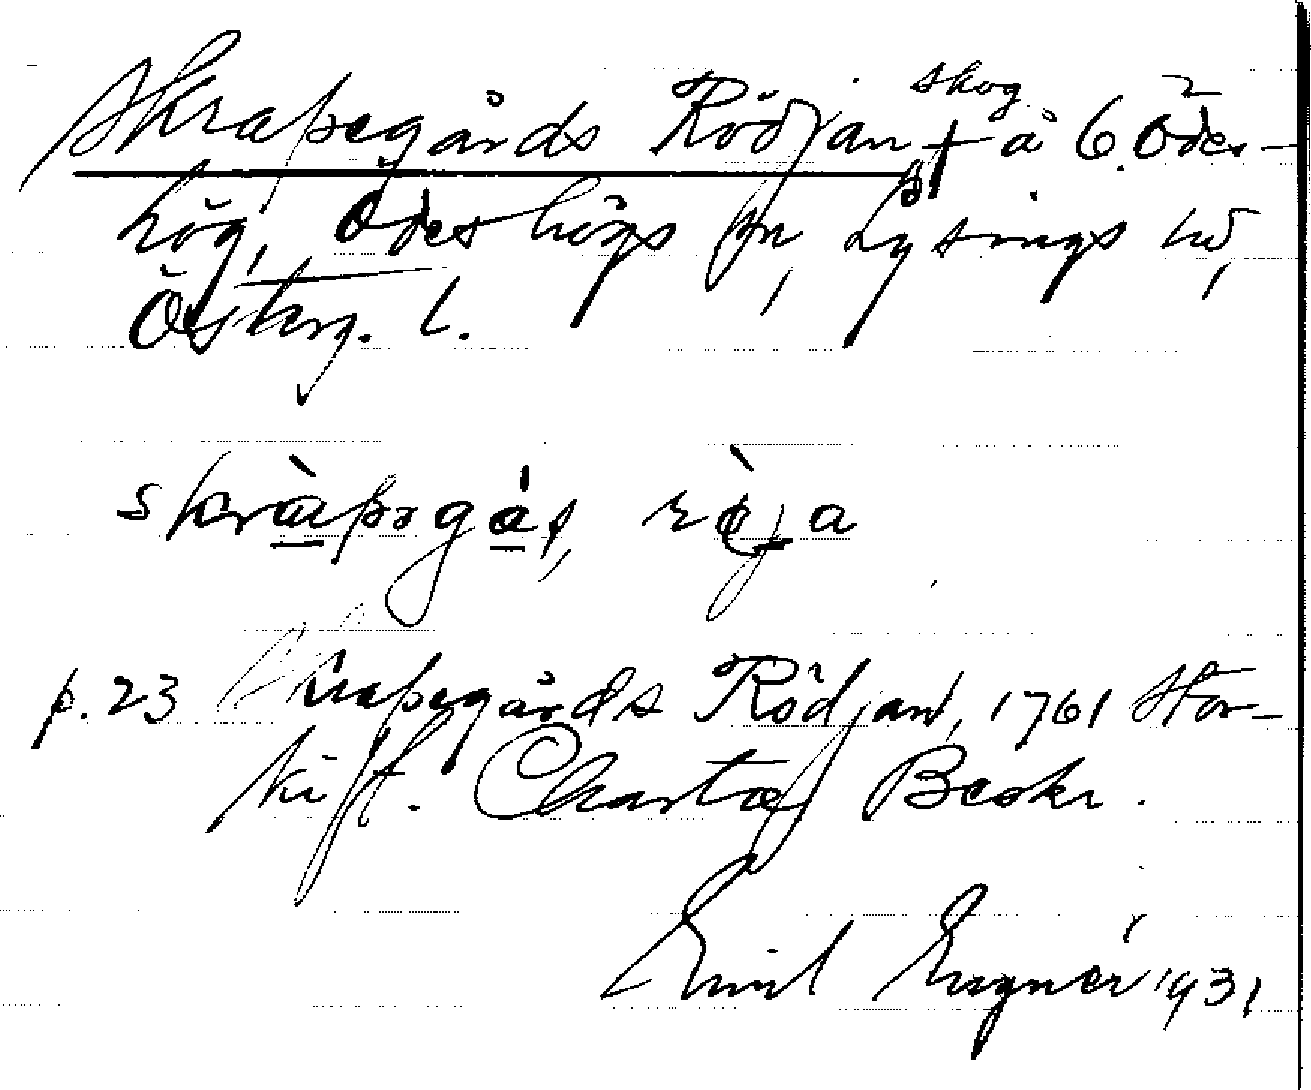 Skrapegårds Rödjan, skog å 6. Ödes-
hög, Ödeshögs sn, Lysings hd,
Österg. l.
skràpəgás, rö̀ja
p. 23 Skrapegårds Rödjan, 1761 Stor-
skift. Charta o Beskr.
Emil 1931